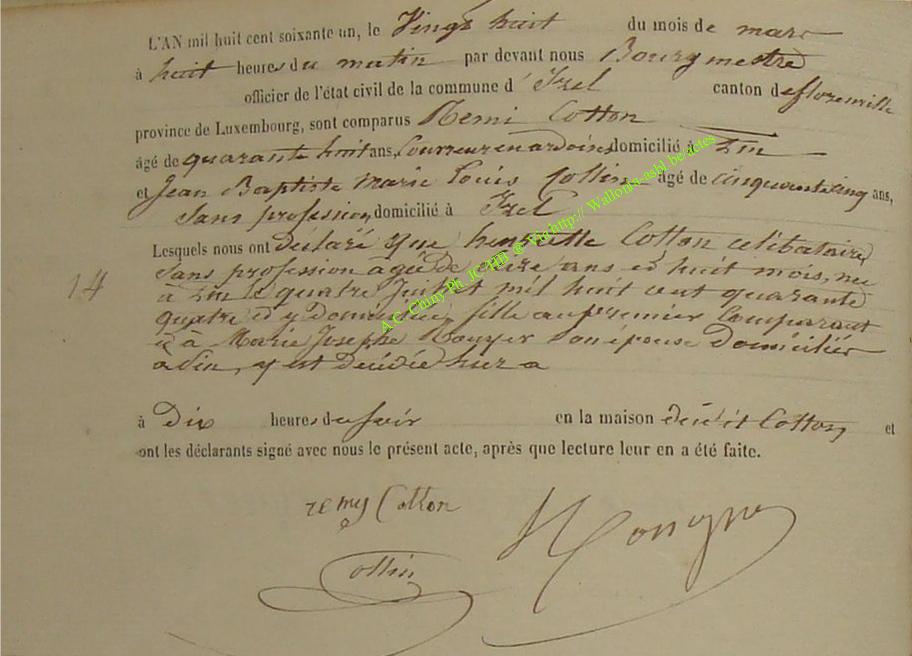 L'AN mil huit cent soixante un, le Vingt huit du mois de mars
à huit heures du matin par devant nous Bourgmestre
officier de l'état civil de la commune d' Izel canton de florenville
province de Luxembourg, sont comparus Remi Cotton
âgé de quarante huit ans, Couvreur en ardoises domicilié à
et Jean Baptiste Marie Louis Collin âgé de cinquante cinq ans,
Sans profession, domicilié à Izel
Lesquels nous ont déclaré que henriette Cotton célibataire
14
Sans profession agée de seize ans et huit mois, née
à le quatre Juillet mil huit cent quarante
quatre et y domiciliée, fille au premier Comparant
et à Marie Josephe son épouse Domiciliés
à y est décédée hier a
à Dix heures du soir en la maison dudit Cotton, et
ont les déclarants signé avec nous le présent acte, après que lecture leur en a été faite.
remy Cotton
Collin
A.C. Chiny Ph. JC HB @ http:// Wallonia-asbl.be/actes